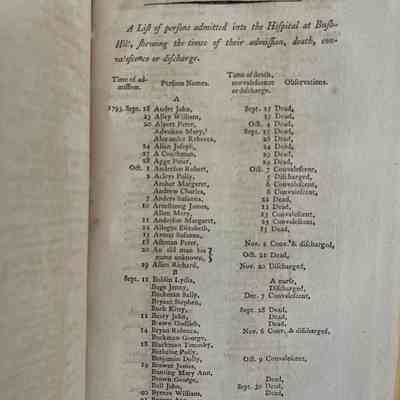 A List of persons admitted into the Hospital at Bush-
Hill, shewing the times of their admission, death, con-
valescence or discharge.
Time of ad-
mission. Persons Names. Time of death, convalescence or discharge. Observations.
A
1793. Sept. 18 Ander John, Sept. 27 Dead,
23 William, 23 Dead,
20 Peter, Oct. 4 Dead,
Mary, Sept. 25 Dead,
Alexander Rebecca, 28 Dead,
24 Allan Joseph, 24 Dead,
27 A Coachman, 29 Dead,
28 Apge Peter, 29 Dead,
Oct. 1 Anderson Robert, Oct. 7 Convalescent,
2 Polly, 5 Discharged,
Amber Margaret, 6 Convalescent,
Andrew Charles, 8 Convalescent,
7 Anders Susanna, 22 Dead,
10 Armstrong James, 11 Dead,
Allen Mary, 23 Convalescent,
11 Anderson Margaret, 22 Convalescent,
14 Elizabeth, 15 Dead,
15 Susanna,
18 Ashman Peter, Nov. 2 Conv. & discharged,
20 An old man his
name unknown, Oct. 21 Dead,
29 Allen Richard, Nov. 20 Discharged,
B
Sept. Lydia, A nurse,
Bugs Jenny, Discharged,
Beckman Sally, Dec. 7 Convalescent,
Bryant Stephen,
Burk Kitty, Sept. 28 Dead,
11 Beary John, Dead,
Brown Godlieb, Dead,
14 Bryan Rebecca, Nov. 6 Conv. & discharged,
Beckman George,
18 Blackman Timothy,
Polly,
Benjamin Dolly, Oct. 9 Convalescent,
19 Brower James,
Bunting Mary Ann, Dead,
Brown George, Dead,
Bell John, Sept. 30 Dead,
20 Byrnes William, Dead,